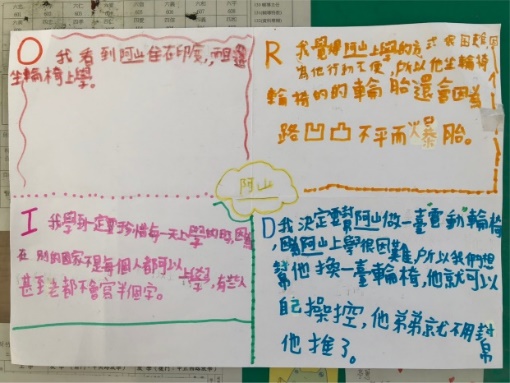 O 我看到阿山住在印度，而且還
坐輪椅上學。
R 我覺得阿山上學的方式很困難，因
為他行動不便，所以他坐輪椅
輪椅的的輪胎還會因為
路凹凸不平而爆胎。
阿山
I 我學到一定要珍惜每一天上學的時間，因
在別的國家不是每個人都可以上學，有些人
甚至老都不會寫半個字。
D 我決定要幫阿山做一臺電動輪椅
，阿山上學很困難，所以我們想
幫他換一臺輪椅，他就可以
自己操控，他弟弟就不用幫
他推了。